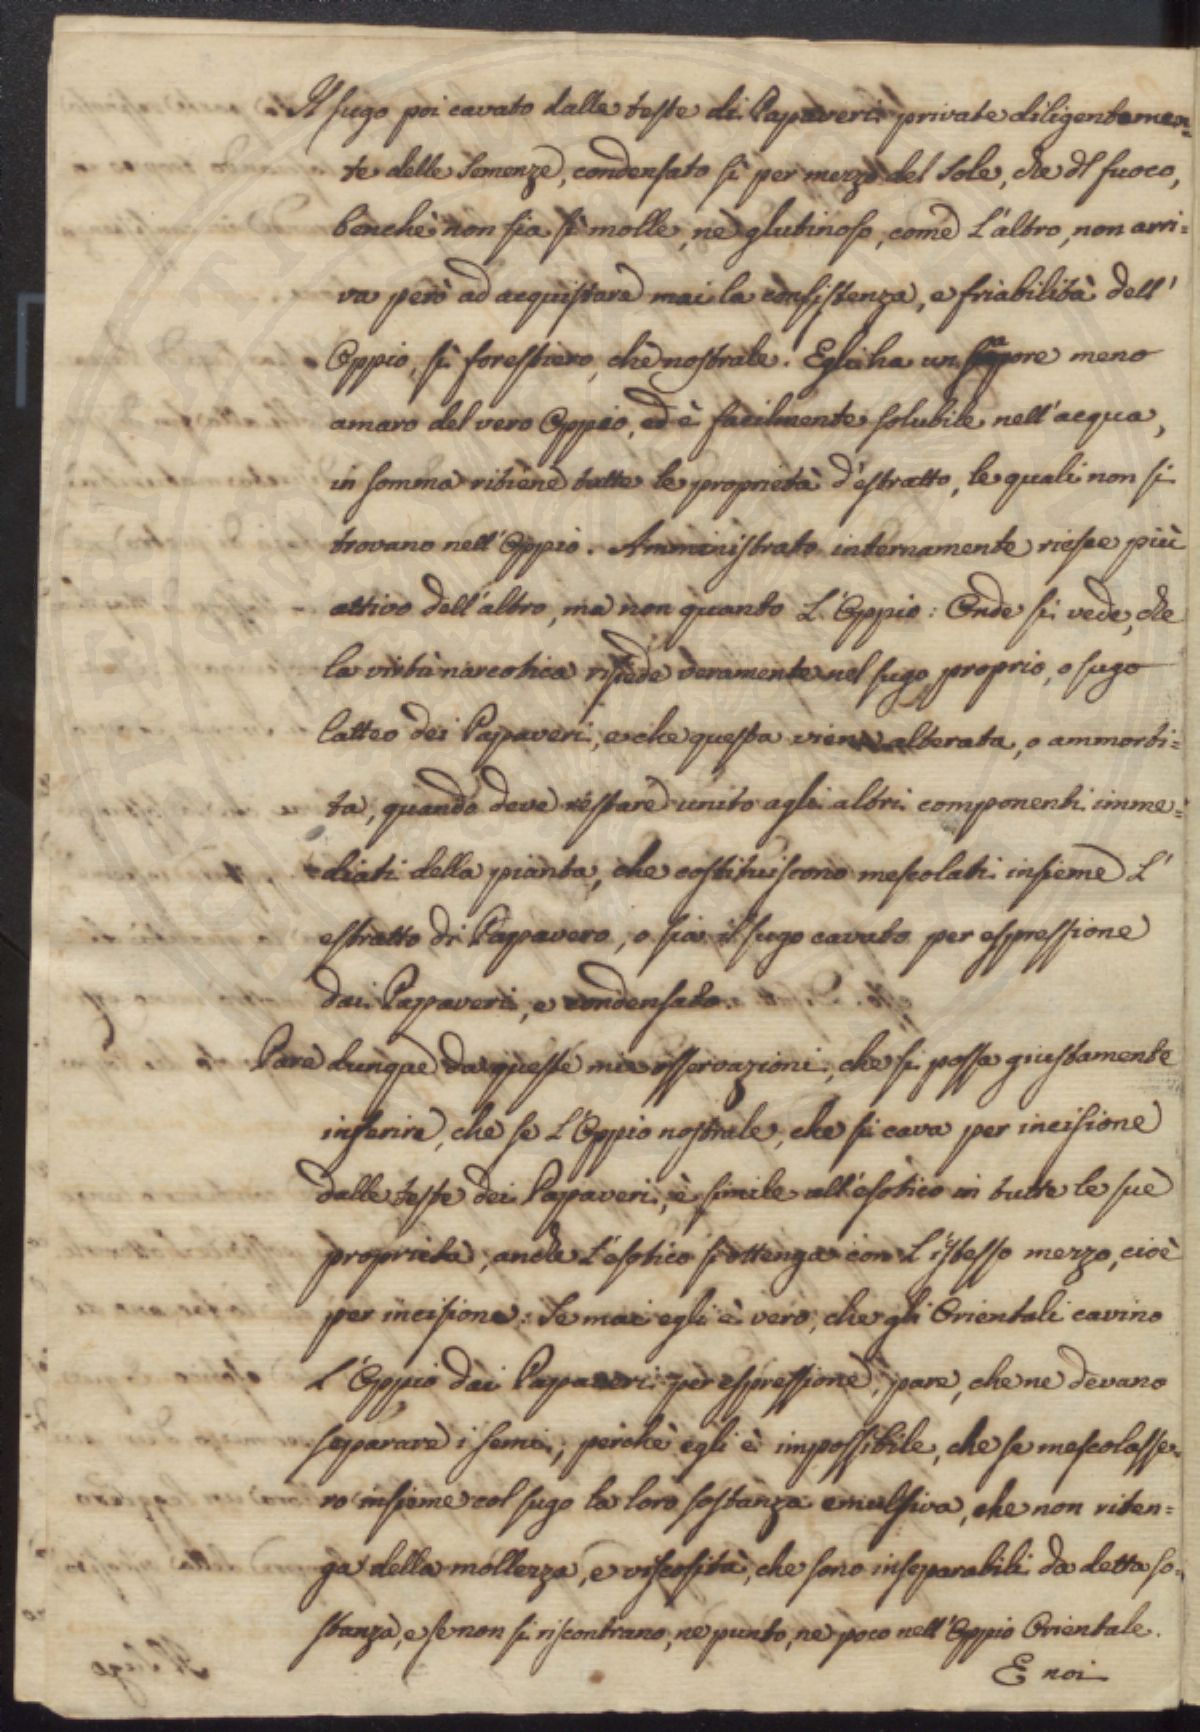 Il sugo poi cavato dalle teste di Papaveri private diligentemen=
te delle Semenze, condensato sì per mezzo del Sole, che dl fuoco,
benchè non sia sì molle, nè glutinoso, come L'altro, non arri=
va però ad acquistare mai la consistenza, e friabilità dell'
Oppio, sì forestiero, che nostrale. Egli ha un sapore meno
amaro del vero Oppio, ed è facilmente solubile nell'acqua,
in somma ritiene tutte le proprietà d'estratto, le quali non si
trovano nell'Oppio. Amministrato internamente riesce più
attivo dell'altro, ma non quanto L'Oppio: Onde si vede, che
la virtù narcotica risiede veramente nel sugo proprio, o sugo
latteo dei Papaveri, e che questa viene alterata, o ammorti=
ta, quando deve restare unito agli altri componenti imme=
diati della pianta, che costituiscono mescolati insieme L'
estratto di Papavero, o sia il sugo cavato per espressione
dai Papaveri, e condensato.
Pare dunque da queste mie osservazioni, che si possa giustamente
inferire, che se L'Oppio nostrale, che si cava per incisione
dalle teste dei Papaveri, è simile all'esotico in tutte le sue
proprietà, anche L'esotico si ottenga con L'istesso mezzo, cioè
per incisione: Se mai egli è vero, che gli Orientali cavino
L'Oppio dai Papaveri per espressione, pare, che ne devano
separare i semi, perchè egli è impossibile, che se mescolasse=
ro insieme col sugo la loro sostanza emulsiva, che non riten=
ga della mollezza, e viscosità, che sono inseparabili da detta so=
stanza, e se non si riscontrano, ne punto, ne poco nell'Oppio Orientale.
E noi